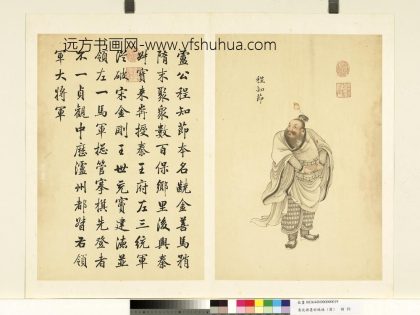 远方书画网-www.yfshuhua.com
程知節
盧公程知節本名齩金善馬矟
隋末聚衆數百保鄉里後與秦
叔寶來奔授秦王府左三統軍
從破宋金剛王世充竇建德並
領左一馬軍摠管搴旗先登者
不一貞觀中歷瀘州都督右領
軍大將軍